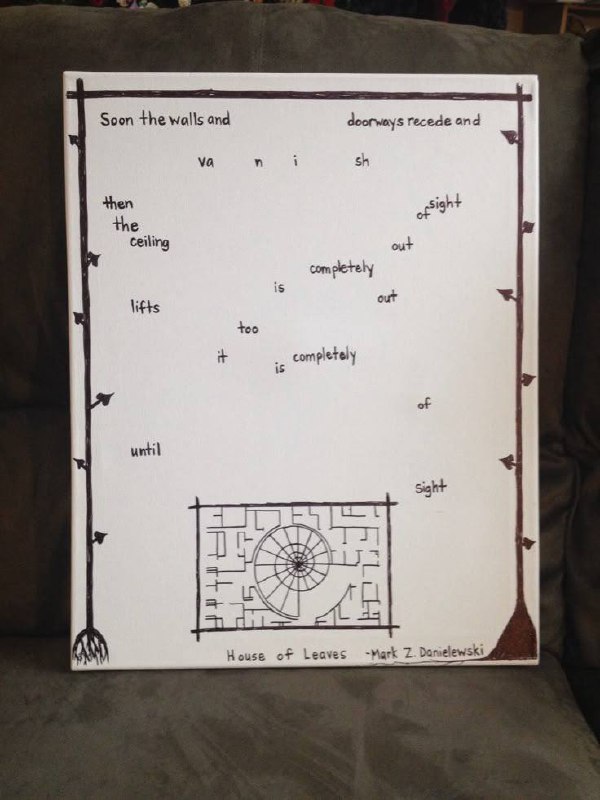 Soon the walls and doorways recede and
va n i sh
then of sight
the
ceiling out
completely
is
lifts out
too
it is completely
of
until
sight
House of Leaves -Mark Z. Danielewski